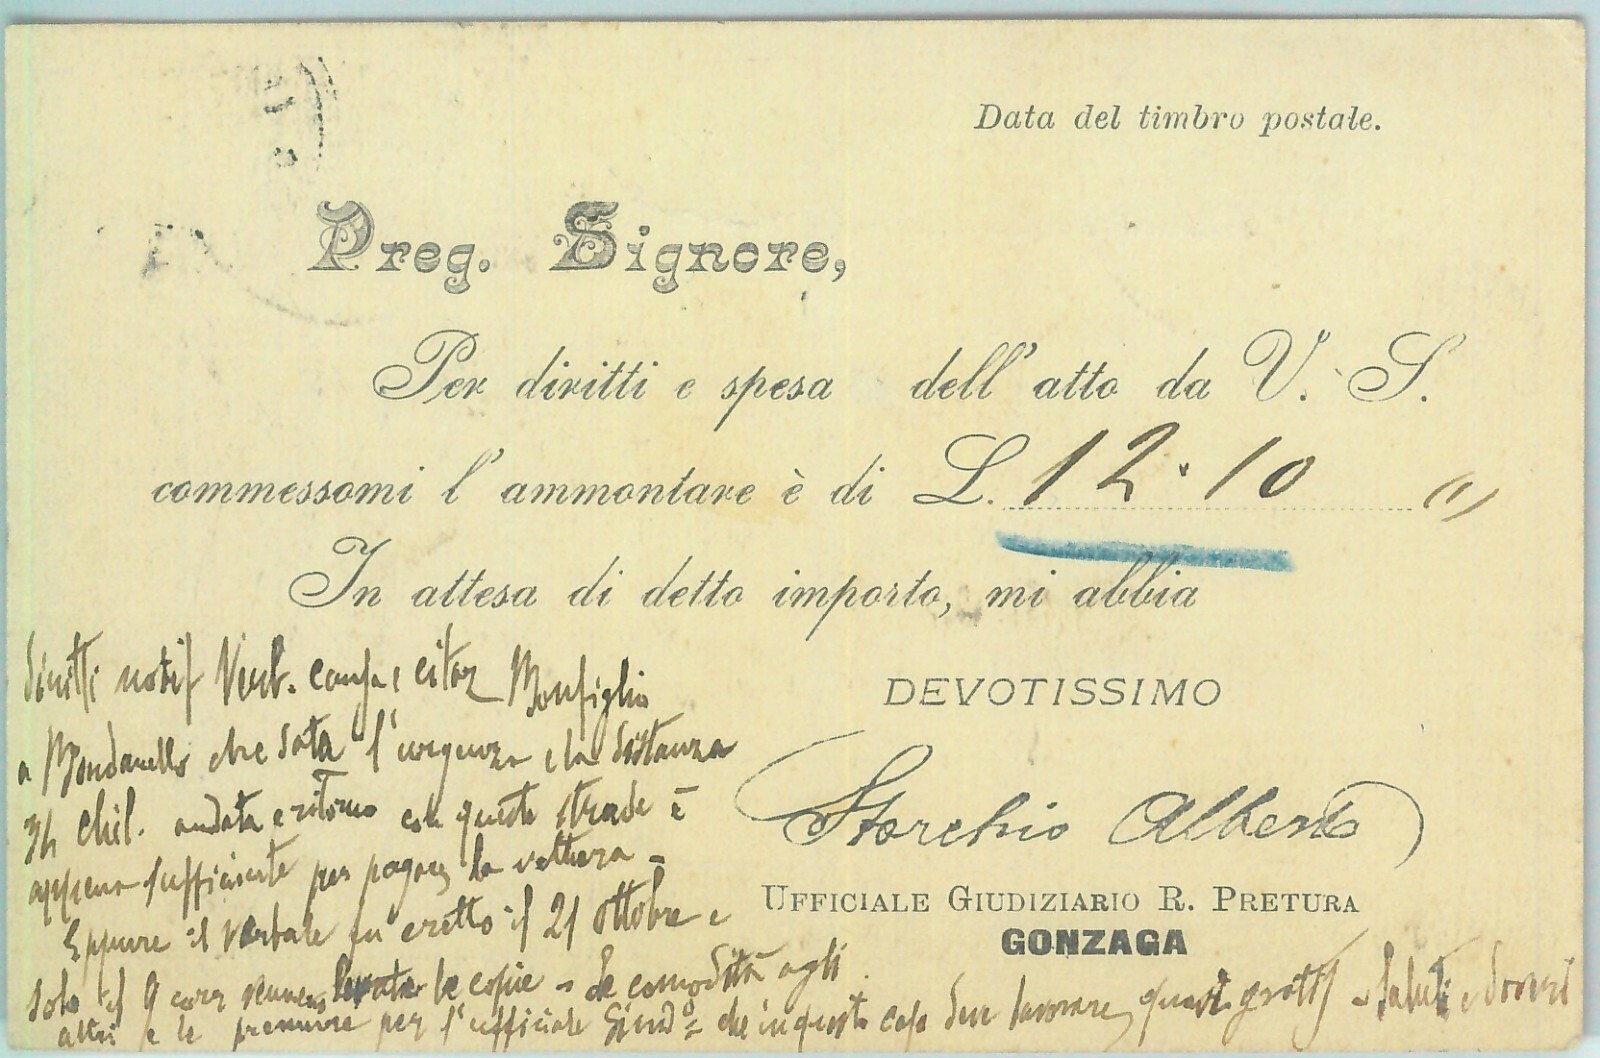 Data del timbro postale.
Preg. Signore,
Per diritti e spesa dell'atto da V. S.
commessomi l'ammontare è di L. 12.10
In attesa di detto importo, mi abbia
DEVOTISSIMO
Storchio Alberto
UFFICIALE GIUDIZIARIO R. PRETURA
GONZAGA
diritti notif Verb. e citaz Monfiglio
a che data l'urgenza e la distanza
chil. andata e ritorno con queste strade è
appena sufficiente per pagare la vettura -
Eppure il verbale fu eretto il 21 ottobre e
solo il 9 le copie - le comodità agli
altri e le premure per l'ufficiale Giudº che in questo caso deve lavorare quasi gratis - Saluti e doveri